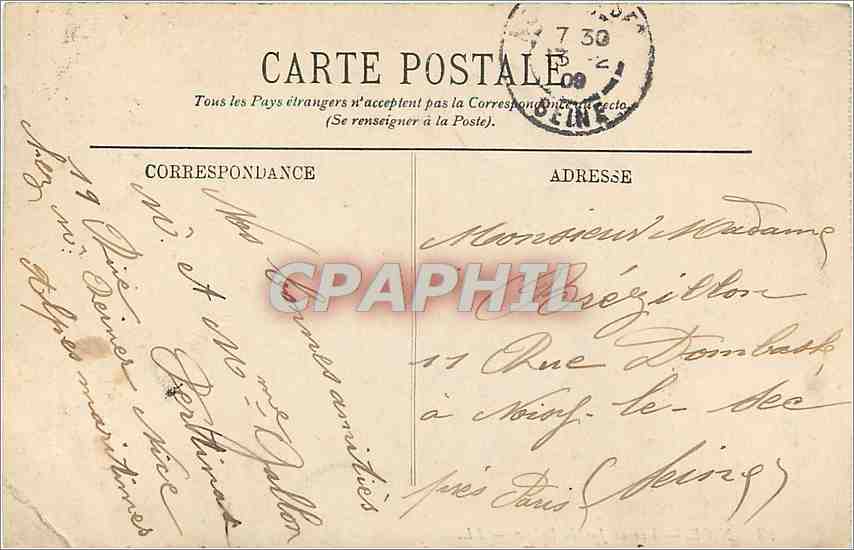 7 30
09
SEINE
CARTE POSTALE
Tous les Pays étrangers n'acceptent pas la Correspondance au recto.
(Se renseigner à la Poste).
CORRESPONDANCE
ADRESSE
Nos bonnes amitiés
Mr. A Mme Gallon
19 Rue Nice
Chez Mr.
Alpes maritimes
Monsieur Madame
11 Rue Dombasle
à Noisy-le-Sec
près Paris (Seine)
CPAPHIL